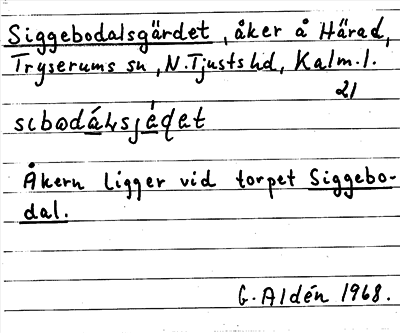 Siggebodalsgärdet, åker å Härad,
Tryserums sn, N. Tjusts hd, Kalm. l.
21
sɩbωdálsjädat
Åkern ligger vid torpet Siggebo-
dal.
G. Aldén 1968.